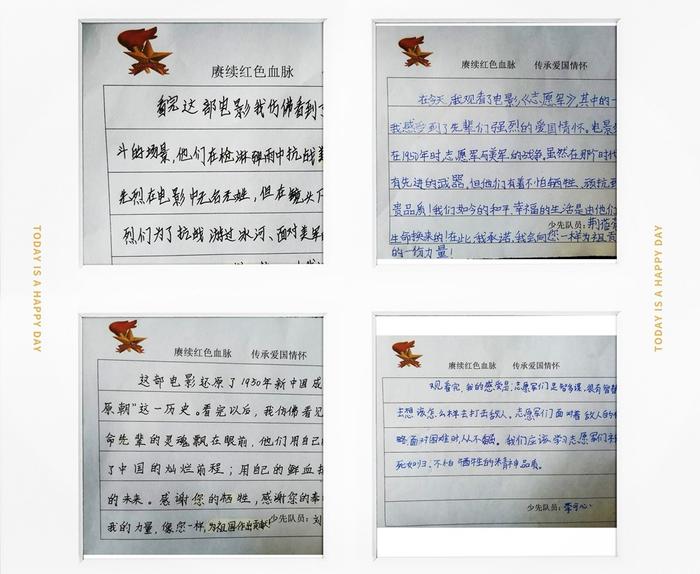 TODAY IS A HAPPY DAY
赓续红色血脉
看完这部电影我仿佛看到了
斗的场景,他们在枪淋弹雨中抗战
先烈在电影中无名无姓,但在镜头下
烈们为了抗战游过冰河、面对美军
赓续红色血脉 传承爱国情怀
在今天,我观看了电影《志愿军》,其中的一
我感受到了先辈们强烈的爱国情怀。电影
在1950年时,志愿军与美军的战争,虽然在那个时代
有先进的武器,但他们有着不怕牺牲、顽抗
贵品质!我们如今的和平、幸福的生活是由他们
少先队员:荆
生命换来的!在此,我承诺,我会向您一样为祖
的一份力量!
赓续红色血脉 传承爱国情怀
这部电影还原了1950年新中国成
原朝"这一历史。看完以后,我仿佛看见
命先辈的灵魂飘在眼前,他们用自己
了中国的灿烂前程;用自己的鲜血
的未来。感谢您的牺牲,感谢您的奉
我的力量,像您一样,为祖国作出贡献!
少先队员:刘
赓续红色血脉 传承爱国情怀
观看完,我的感受是:志愿军们足智多谋、很有智
去想该怎么样去打击敌人。志愿军们面对着敌人的
略面对困难时,从不 。我们应该学习志愿军们
死如归、不怕牺牲的精神品质。
少先队员:李
TODAY IS A HAPPY DAY